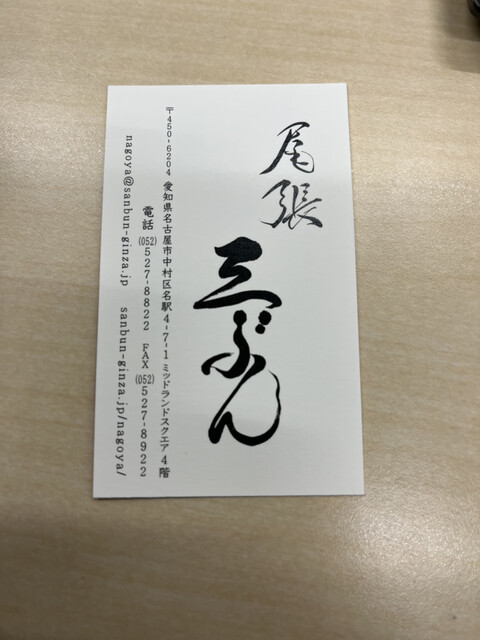 尾張
三ぶん
〒450-6204 愛知県名古屋市中村区名駅4-7-1 ミッドランドスクエア4階
電話(052)527-8822 FAX(052)527-8922
nagoya@sanbun-ginza.jp sanbun-ginza.jp/nagoya/